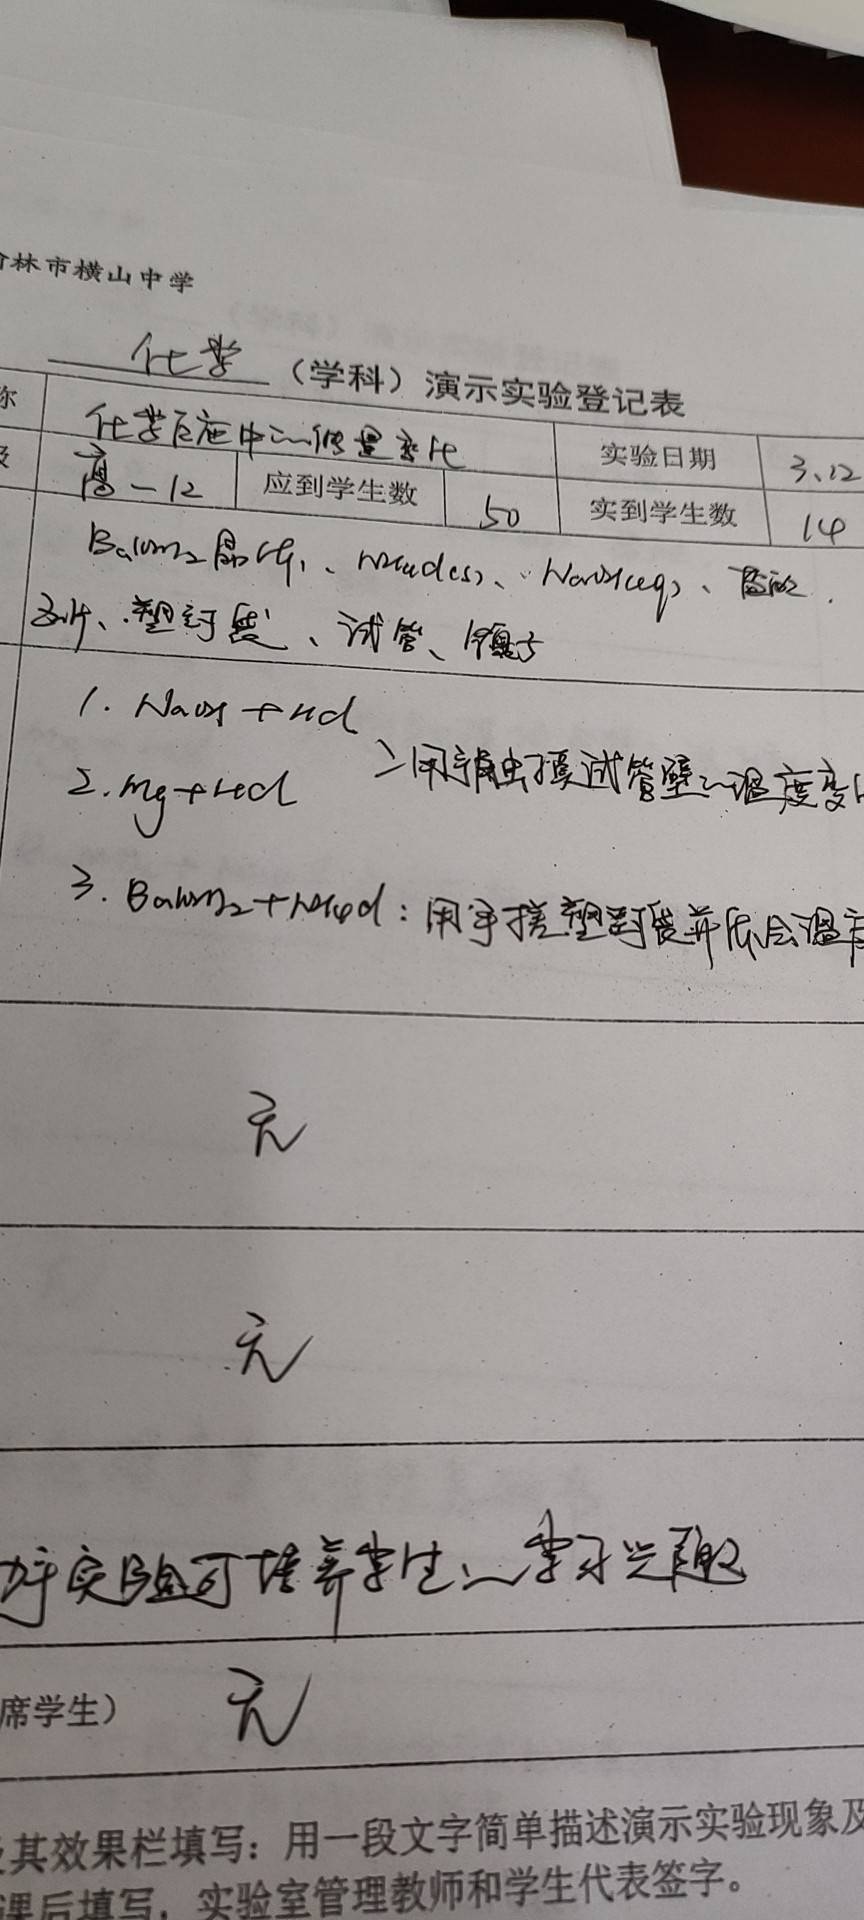 林市横山中学
化学（学科）演示实验登记表
称 化学反应中的能量变化 实验日期 3.12
级 高一12 应到学生数 50 实到学生数 14
Ba(OH)2晶体、NH4Cl(s)、NaOH(aq)、盐酸
塑封袋、试管、镊子
1. NaOH+HCl
2. Mg+HCl
>用手触摸试管壁的温度变
3. Ba(OH)2+NH4Cl:用手搓塑封袋并体会温度
无
无
实验可培养学生的学习兴趣
席学生） 无
及其效果栏填写：用一段文字简单描述演示实验现象及
课后填写，实验室管理教师和学生代表签字。